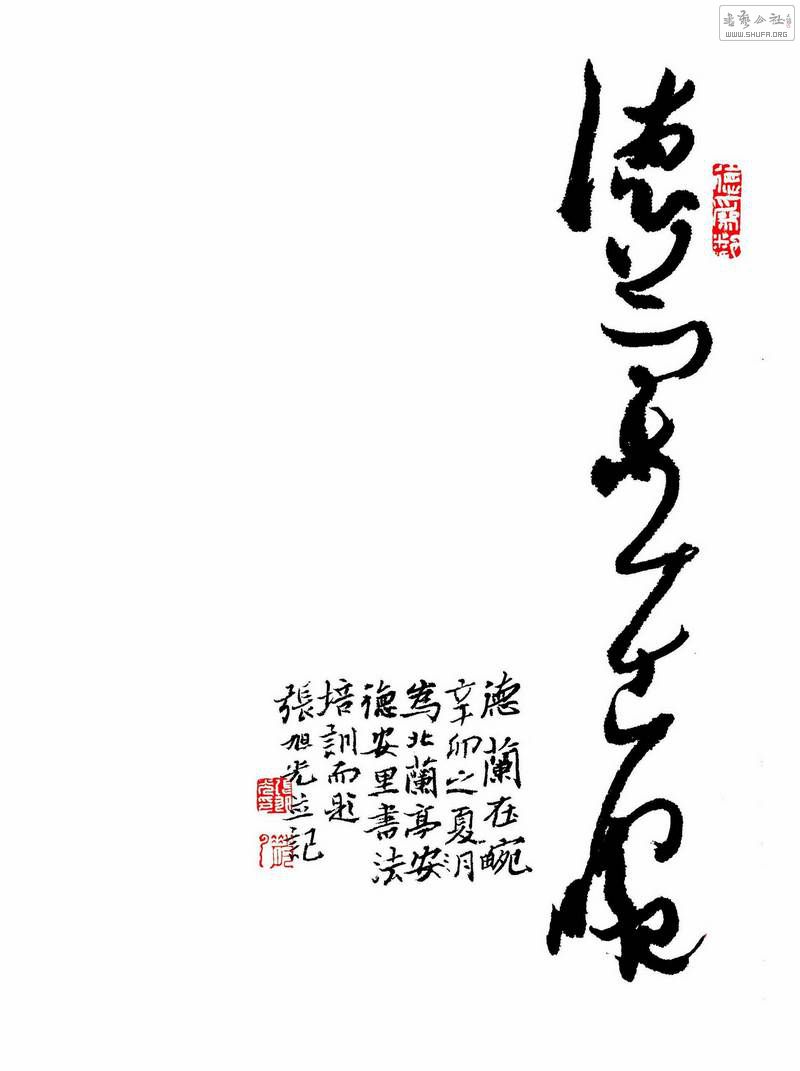 德兰在畹
德蘭在畹
辛卯之夏月
為北蘭亭安
德安里書法
培訓而題
張旭光並記
書藝公社
WWW.SHUFA.ORG